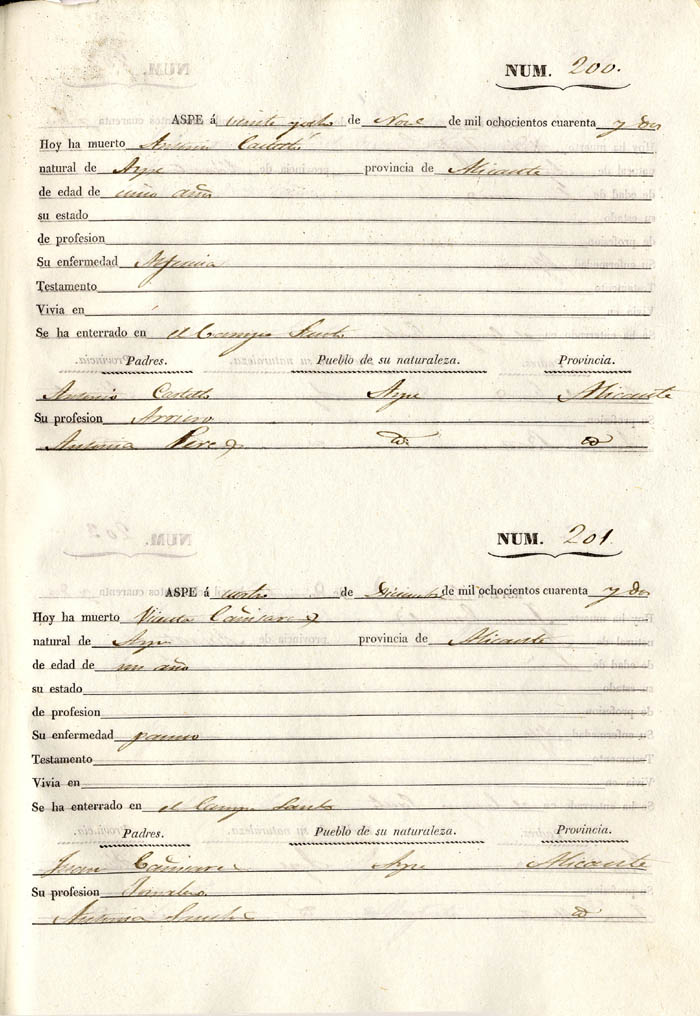 NUM. 200.
ASPE á veinte y ocho de Nove de mil ochocientos cuarenta y dos
Hoy ha muerto Antonio Castelló
natural de Aspe provincia de Alicante
de edad de años
su estado
de profesion
Su enfermedad
Testamento
Vivia en
Se ha enterrado en el Campo Santo
Padres. Pueblo de su naturaleza. Provincia.
Antonio Castelló Aspe Alicante
Su profesion Arriero
Antonia Perez id. id
NUM. 201.
ASPE á de Diciembre de mil ochocientos cuarenta y dos
Hoy ha muerto Cañizares
natural de Aspe provincia de Alicante
de edad de un año
su estado
de profesion
Su enfermedad
Testamento
Vivia en
Se ha enterrado en el Campo Santo
Padres. Pueblo de su naturaleza. Provincia.
Juan Cañizares Aspe Alicante
Su profesion Jornalero
Antonia id